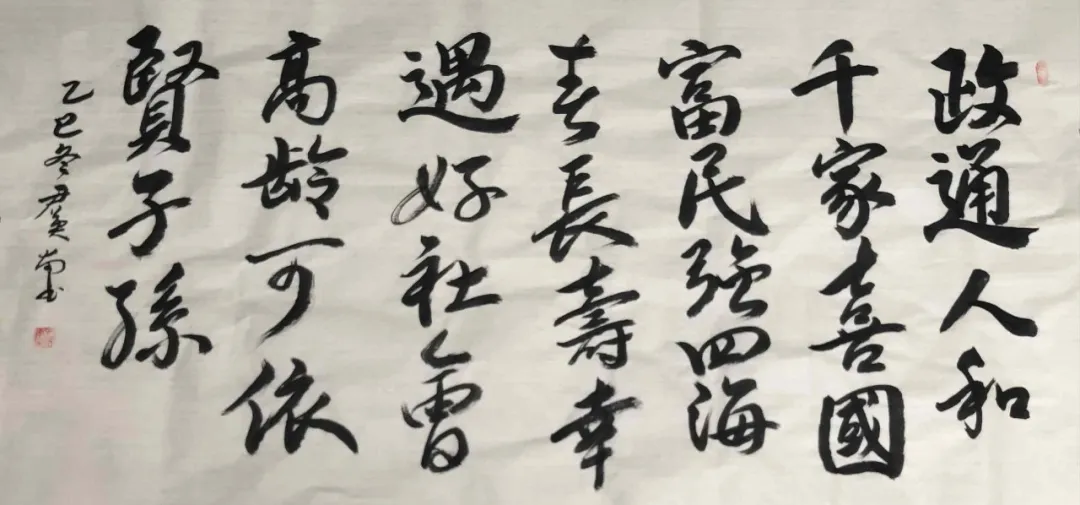 政通人和
千家喜國
富民強四海
春長壽幸
遇好社會
高龄可依
賢子孫
乙巳冬 書